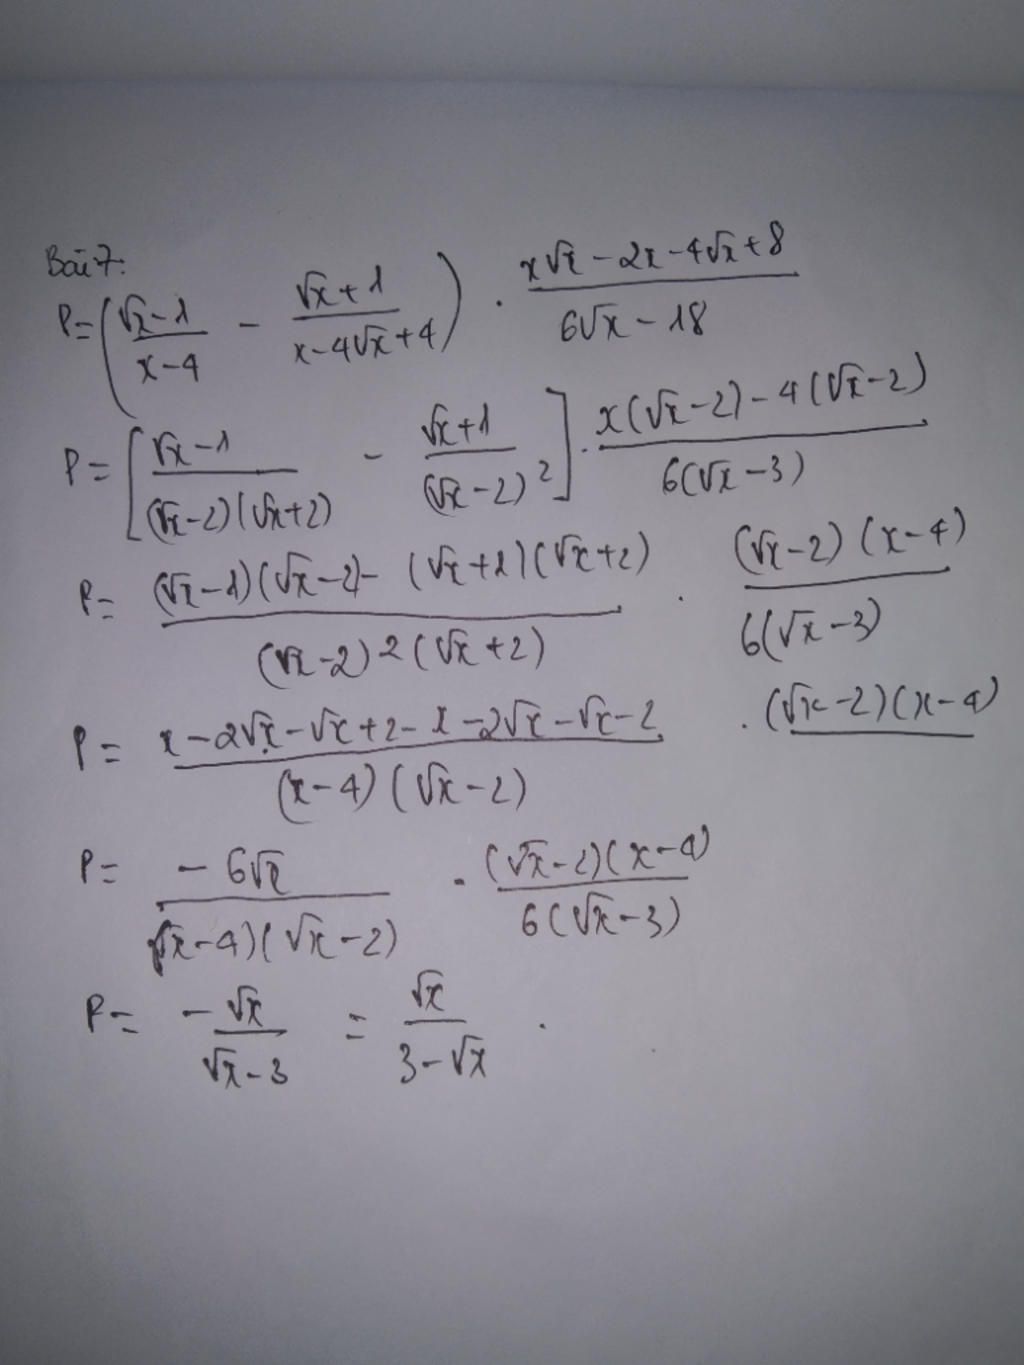 Bài 7:
P = (√x − 1 / x − 4 − √x + 1 / x − 4√x + 4) · x√x − 2x − 4√x + 8 / 6√x − 18
P = [√x − 1 / (√x − 2)(√x + 2) − √x + 1 / (√x − 2)²] · x(√x − 2) − 4(√x − 2) / 6(√x − 3)
P = (√x − 1)(√x − 2) − (√x + 1)(√x + 2) / (√x − 2)2(√x + 2) · (√x − 2)(x − 4) / 6(√x − 3)
P = x − 2√x − √x + 2 − x − 2√x − √x − 2 / (x − 4)(√x − 2) · (√x − 2)(x − 4)
P = − 6√x / (x − 4)(√x − 2) · (√x − 2)(x − 4) / 6(√x − 3)
P = − √x / √x − 3 = √x / 3 − √x .